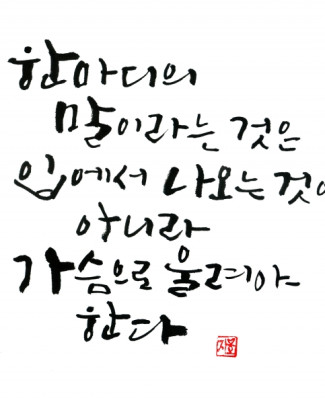 한마디의
말이라는 것은
입에서 나오는 것이
아니라
가슴으로 울려야
한다